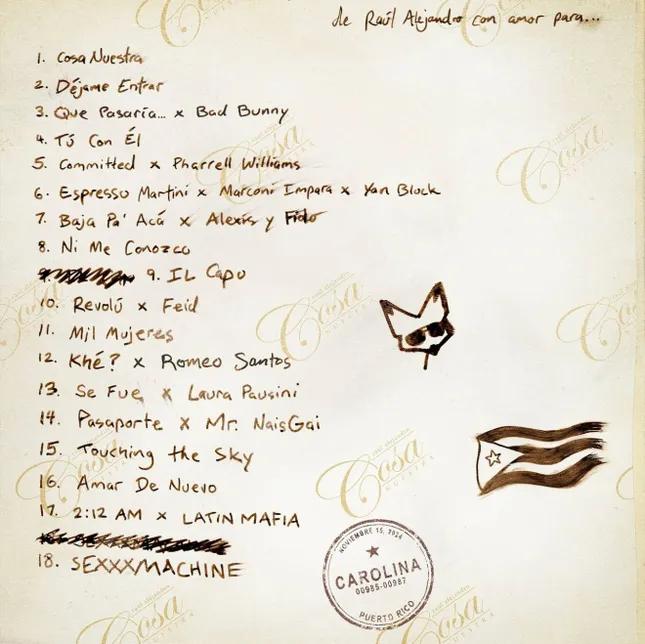 de Raúl Alejandro con amor para...
1. Cosa Nuestra
2. Déjame Entrar
3. Que Pasaría... x Bad Bunny
4. Tú Con Él
5. Committed x Pharrell Williams
6. Espresso Martini x Marconi Impara x Yan Block
7. Baja Pa' Acá x Alexis y Fido
8. Ni Me Conozco
9. 9. IL Capo
10. Revolú x Feid
11. Mil Mujeres
12. Khé? x Romeo Santos
13. Se Fue x Laura Pausini
14. Pasaporte x Mr. NaisGai
15. Touching the Sky
16. Amar De Nuevo
17. 2:12 AM x LATIN MAFIA
18. SEXXXMACHINE
NOVIEMBRE 15, 2024
CAROLINA
00985-00987
PUERTO RICO
raúl alejandro
Cosa
NUESTRA